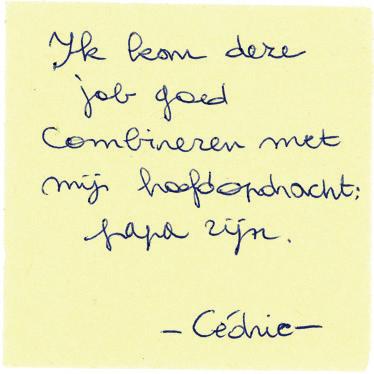 Ik kan deze
job goed
combineren met
mijn hoofdopdracht:
papa zijn.
-Cédric-